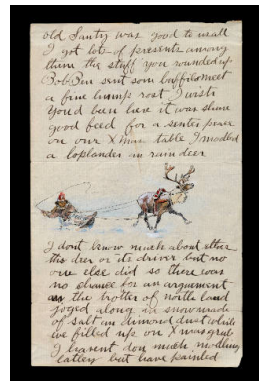 old Santy was good to us all
I got lots of presents among
them the stuff you rounded up.
Bob Ben sent som buffilo meet
a fine hump rost I wish
you'd been here it was shure
good feed for a senter peace
on our Xmas table I modled
a loplander in raindeer
I dont know much about ether
the deer or its driver but no
one else did so there was
no chance for an arguement
as the trotter of north land
joged along in snow made
of salt an dimond dust while
we filled up on Xmas grub
I havent don much modling
lattely but have painted